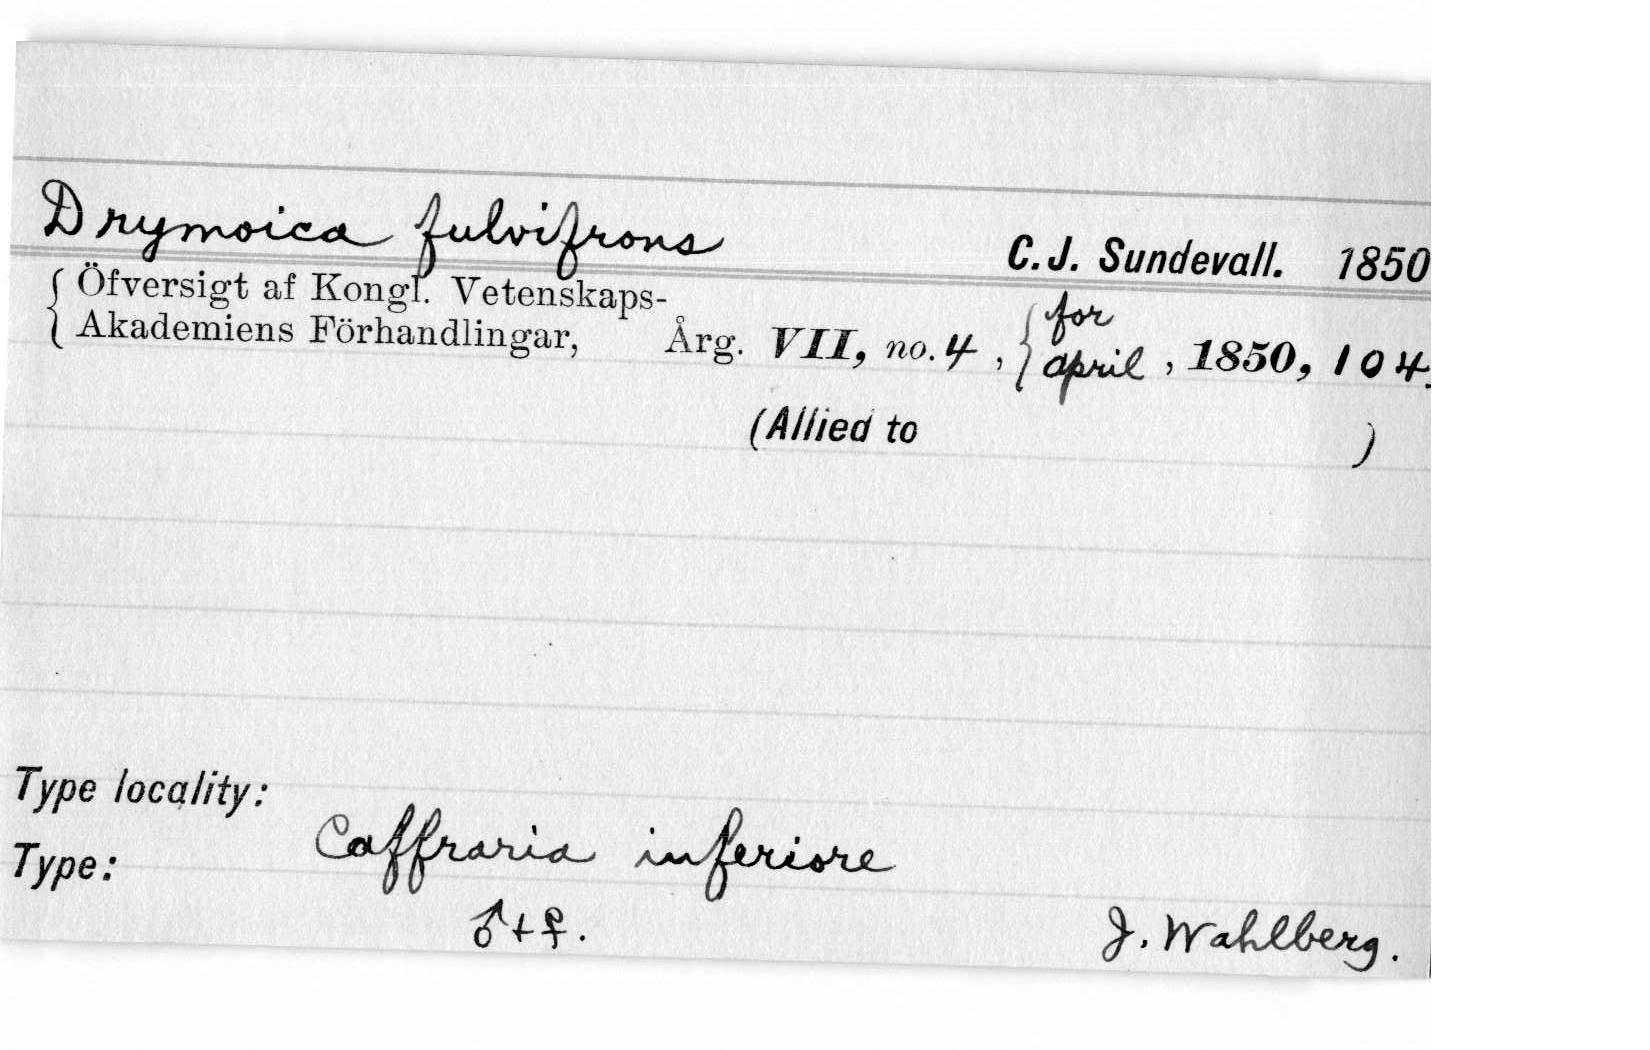 Drymoica fulvifrons C.J. Sundevall. 1850
Öfversigt af Kongl. Vetenskaps-
Akademiens Förhandlingar, Årg. VII, no. 4, {for april, 1850, 104.
(Allied to )
Type locality:
Caffraria inferiore
Type:
♂+♀.
J. Wahlberg.